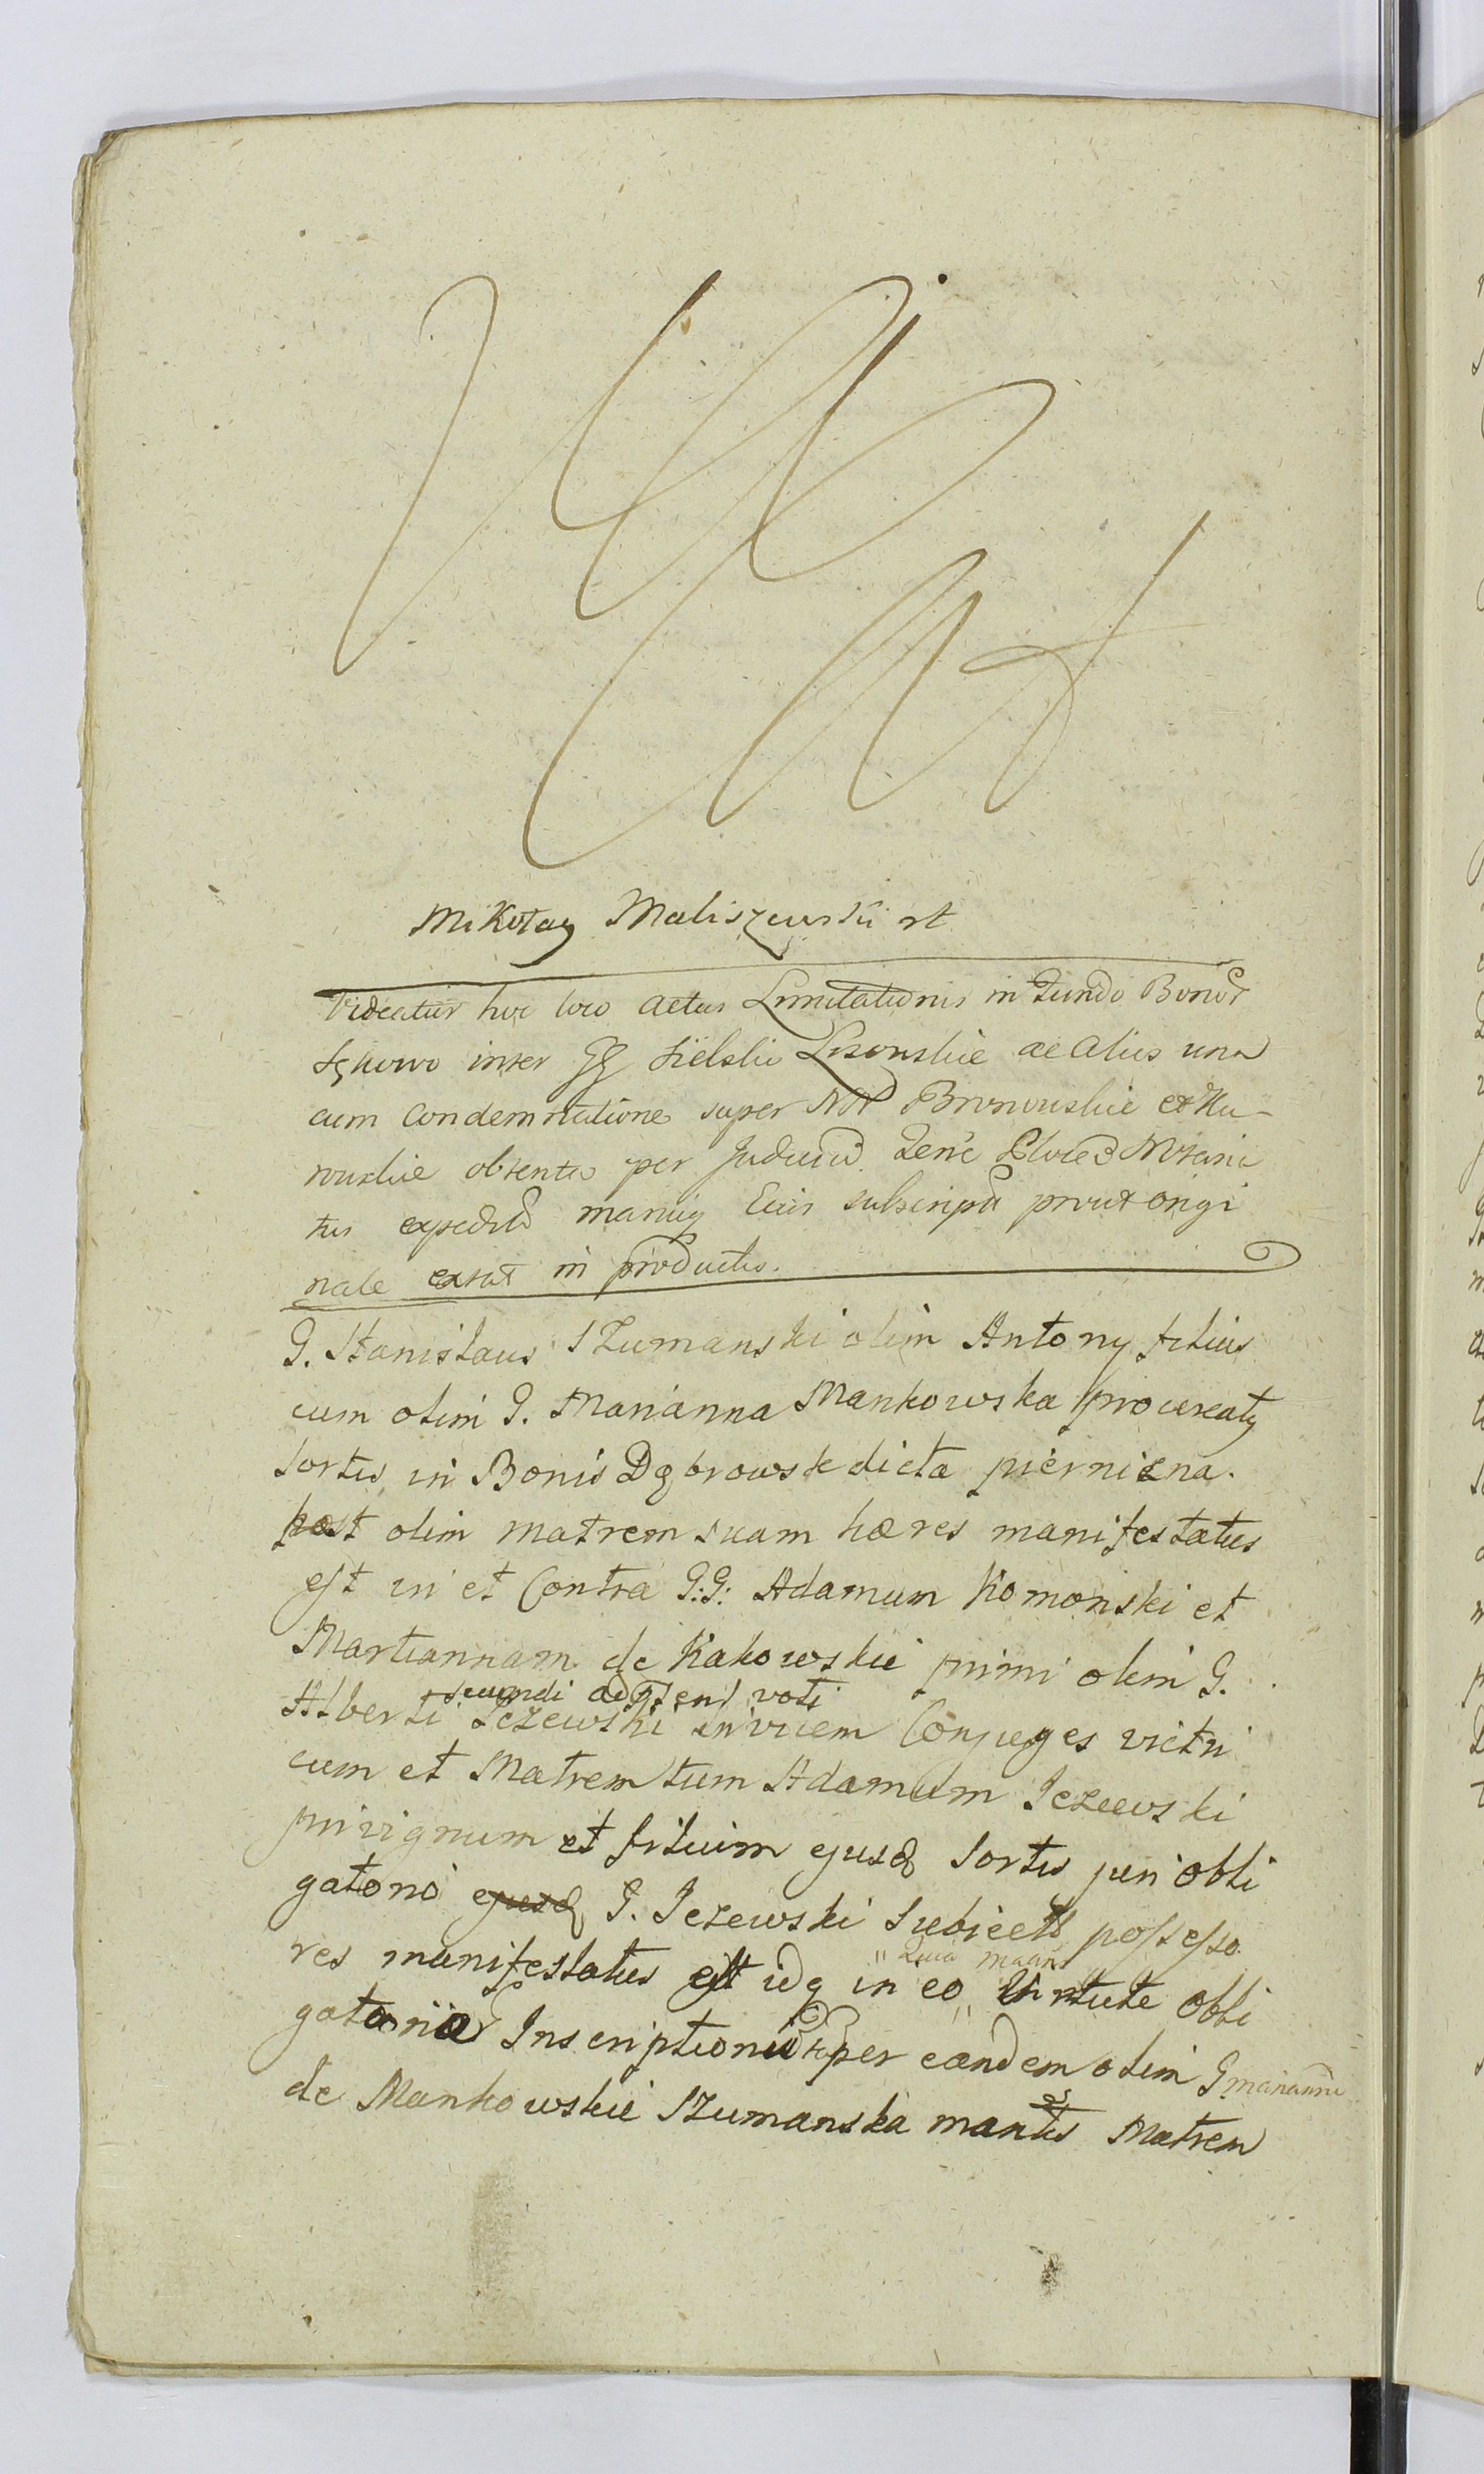 Mikołay Maliszewski
Videatur hoc loco actus Limitationis in Fundo Bonor
inter GG Lisowskie ac alios una
cum Condemnatione super NN Bromowskie et Ku-
rowskie obtenta per Judicium
tus expedit manuq Eius subscript prout origi
nale extat in productis.
G. Stanislaus Szumanski olim Antony filius
cum olim G. Marianna Mankowska procreatq
sortis in Bonis Dąbrowsk dicta piernizna.
post olim matrem suam hæres manifestatus
est in et Contra G:G: Adamum Komoński et
Martiannam de Kakowskie primi olim G.
secundi ad pssens voti
Alberti Jeżewski invicem Conjuges victri
cum et Matrem tum Adamum Jezewski
privignum et filium ejusd sortis juri obli
gatorio ejusd G. Jezewski Subiecta possesso
res manifestatus est idq in eo „ Virtute obli
„ quia
gatoriæ Inscriptionis per eandem olim G Marianna
de Mankowskie Szumanska Matrem